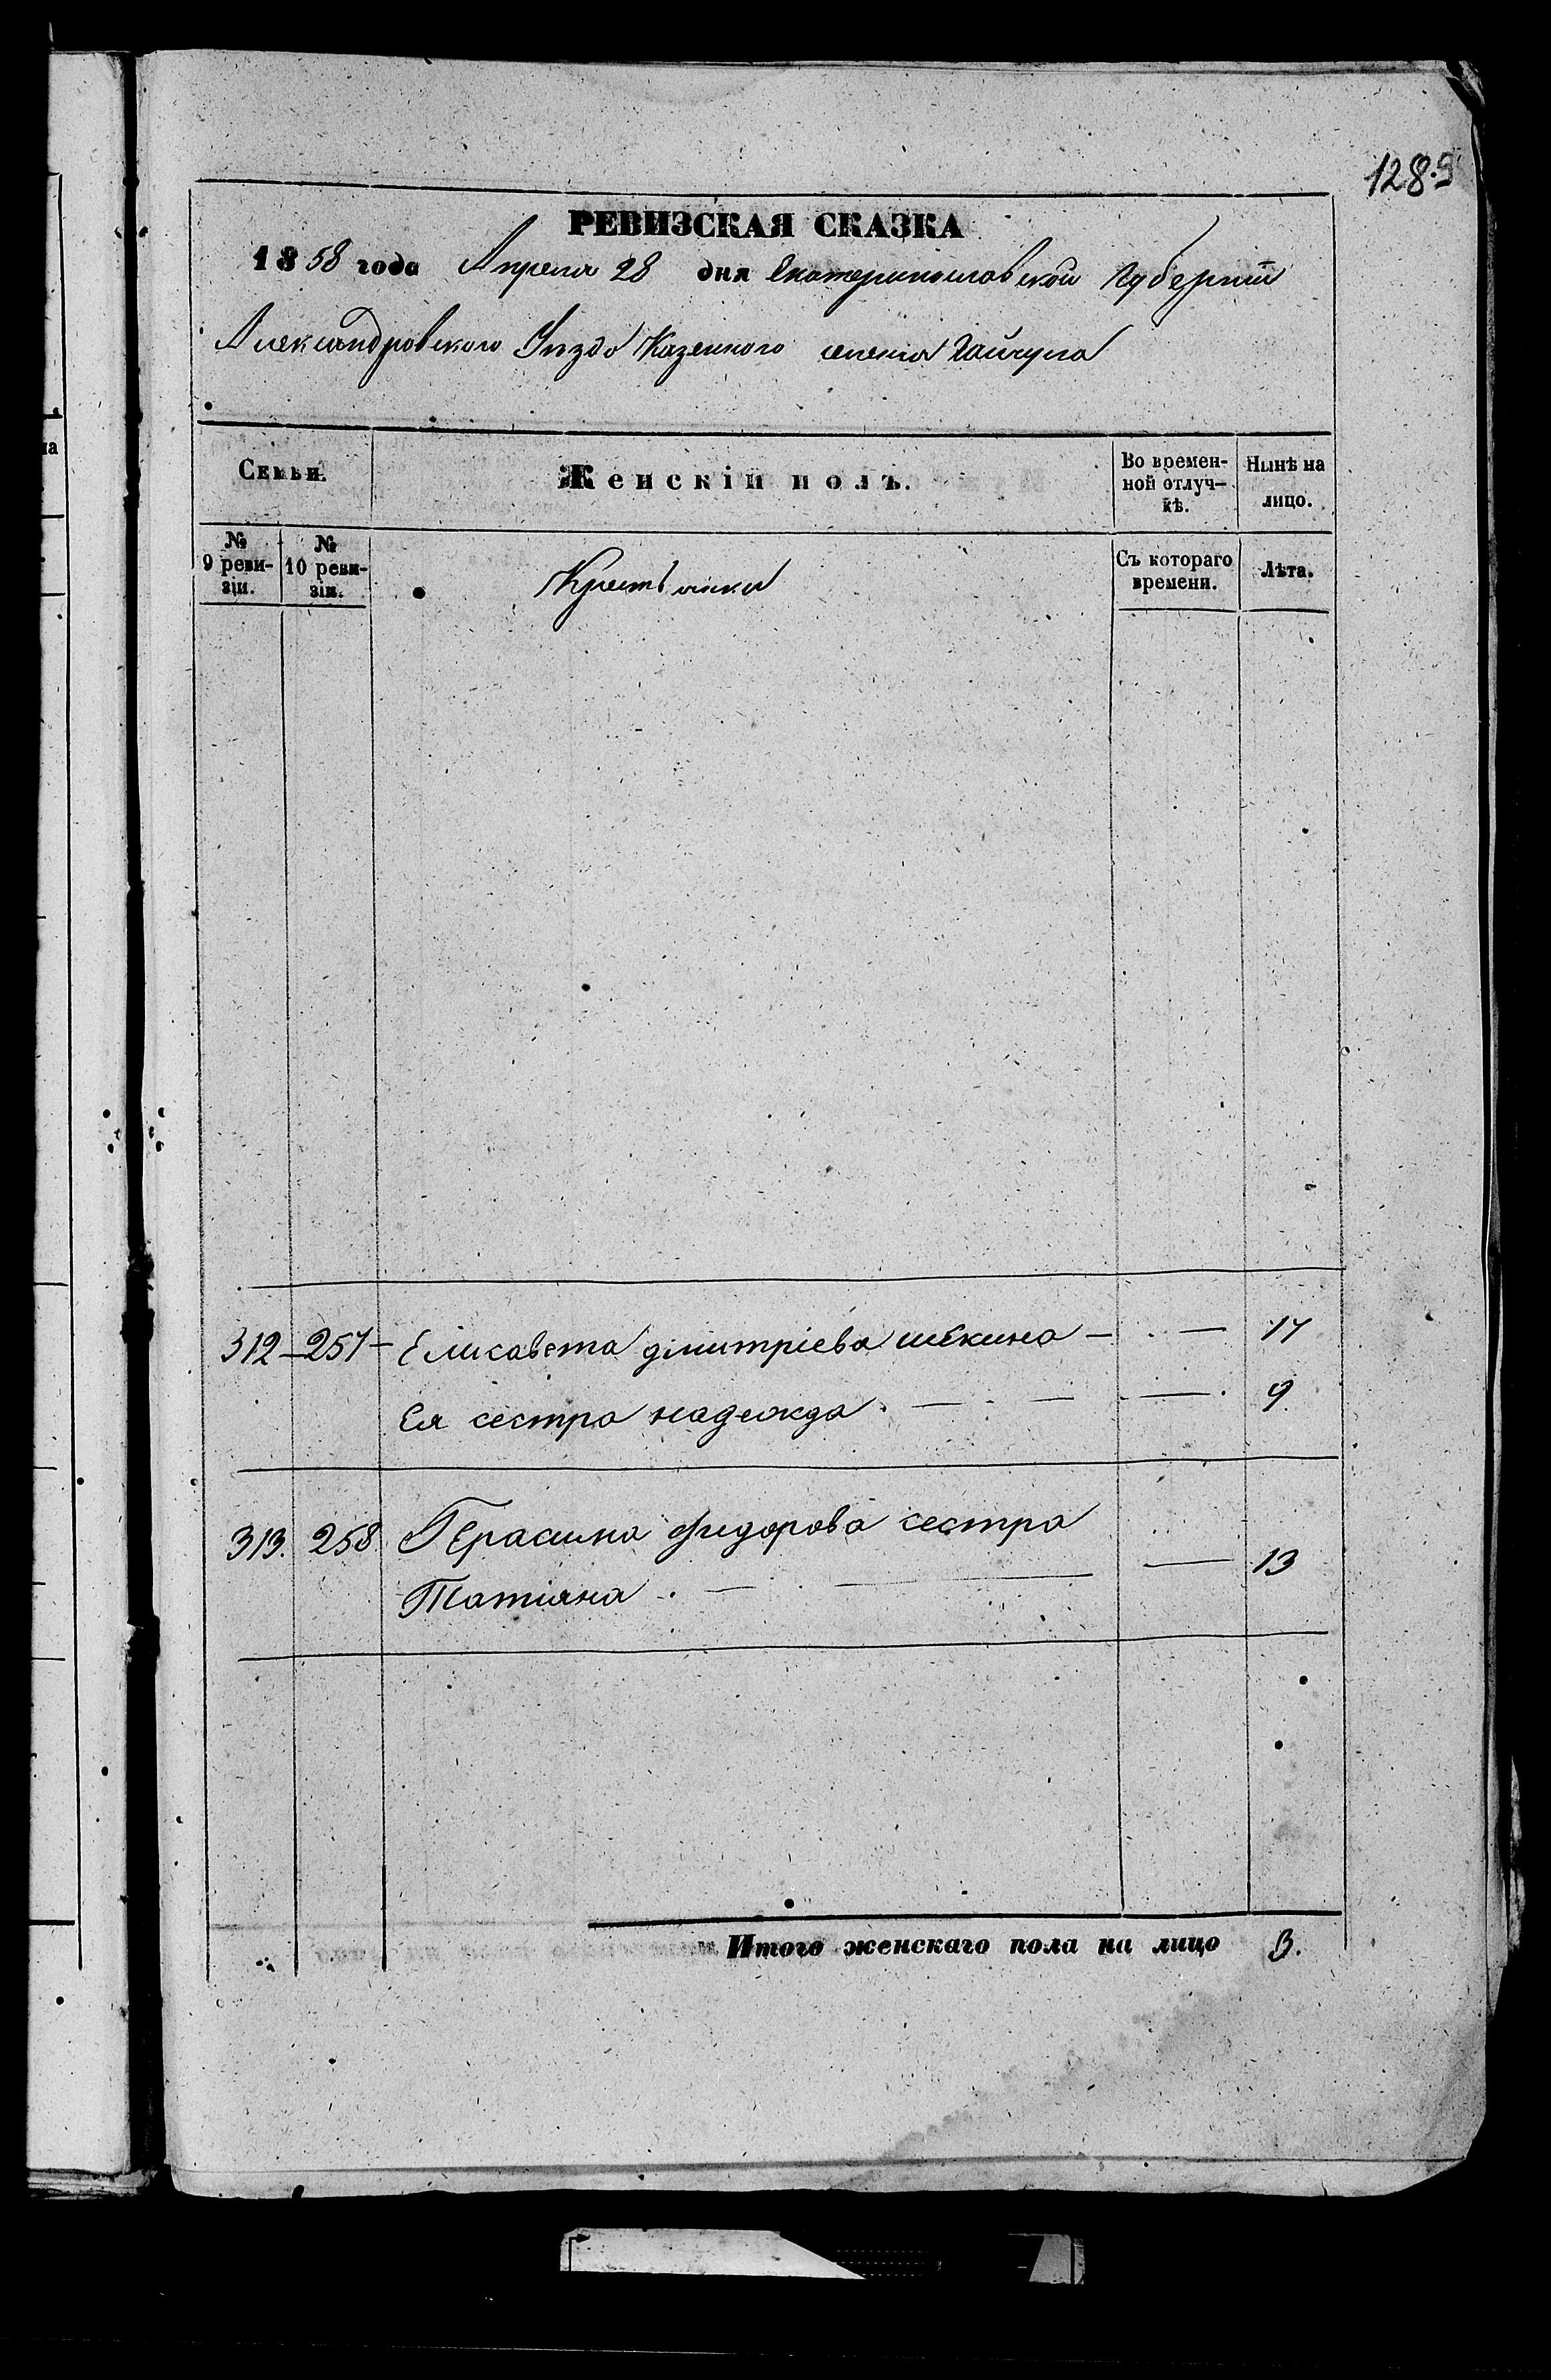 128.9
РЕВИЗСКАЯ СКАЗКА
1858 года Апреля 28 дня Екатеринославской Губернии
Александровского Уезда Казенного селения Гайчула
Семьи.
Женскій полъ.
Во времен-
ной отлуч-
кѣ.
Нынѣ на
лицо.
№
9 реви-
зіи.
№
10 реви-
зіи.
Крестьянки
Съ котораго
времени.
Лѣта.
312 — 257 — Елисавета димитріева — · — 17
Ея сестра надежда · — · — · — · 9
313. 258 Герасима фидорова сестра
Татіяна · — · — — 13
Итого женскаго пола на лицо 3.